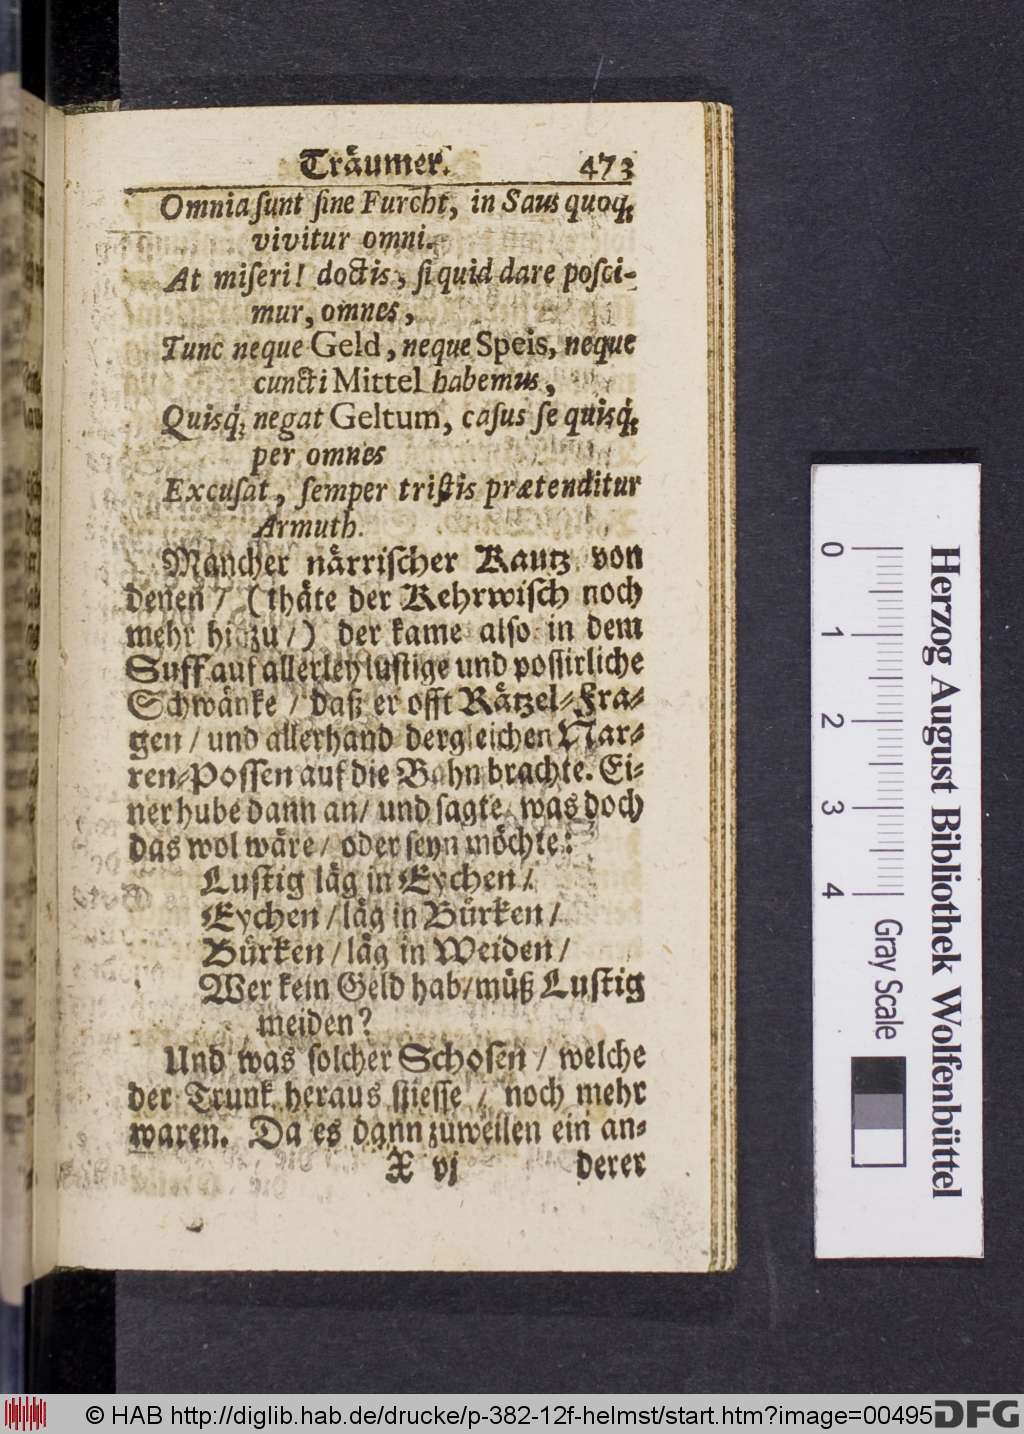 Träumer. 473
Omnia ſunt ſine Furcht, in Saus quoq́;
vivitur omni.
At miſeri! doctis, ſi quid dare poſci-
mur, omnes,
Tunc neque Geld, neque Speis, neque
cuncti Mittel habemus,
Quisq́; negat Geltum, caſus ſe quisq́;
per omnes
Excuſat, ſemper triſtis prætenditur
Armuth.
Mancher närriſcher Kautz von
denen / (thäte der Kehrwiſch noch
mehr hinzu /) der kame alſo in dem
Suff auf allerley luſtige und poſſirliche
Schwänke / daß er offt Rätzel-Fra-
gen / und allerhand dergleichen Nar-
ren-Poſſen auf die Bahn brachte. Ei-
ner hube dann an / und ſagte, was doch
das wol wäre / oder ſeyn möchte:
Luſtig läg in Eychen /
Eychen / läg in Bürken /
Bürken / läg in Weiden /
Wer kein Geld hab / müß Luſtig
meiden?
Und was ſolcher Schoſen / welche
der Trunk heraus ſtieſſe / noch mehr
waren. Da es dann zuweilen ein an-
X vj derer
0 1 2 3 4
Gray Scale
Herzog August Bibliothek Wolfenbüttel
© HAB http://diglib.hab.de/drucke/p-382-12f-helmst/start.htm?image=00495
DFG